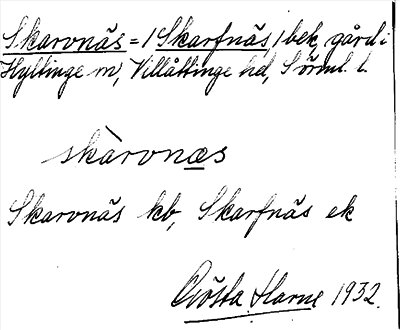 Skarvnäs = /Skarfnäs/ bek, gård i
Hyltinge sn, Villåttinge hd, Sörml. l.
skàrvnæs
Skarvnäs kb, Skarfnäs ek
Gösta Harne 1932.